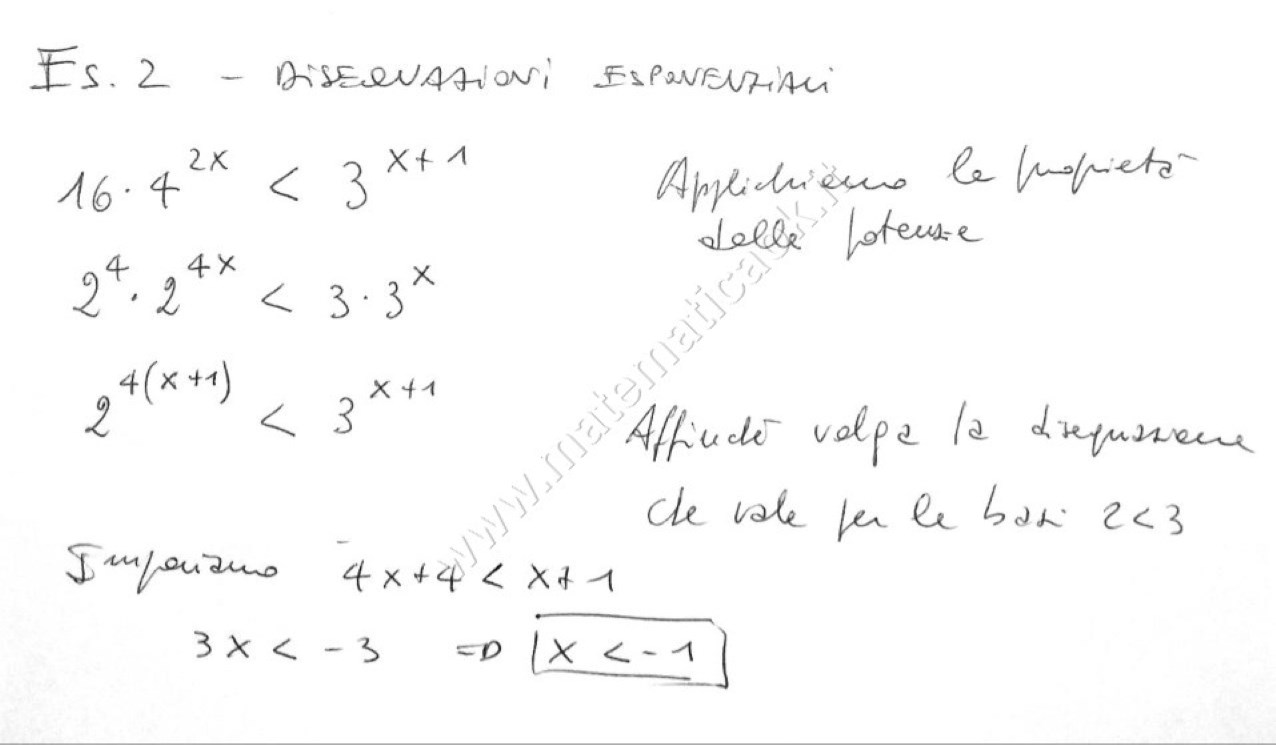 Es. 2 - DISEQUAZIONI ESPONENZIALI
16 · 4^{2x} < 3^{x+1}
Applichiamo le propietà
delle potenze
2^4 · 2^{4x} < 3 · 3^x
2^{4(x+1)} < 3^{x+1}
Affinché valga la disequazione
che vale per le basi 2<3
Imponiamo 4x+4 < x+1
3x < -3 => x < -1
www.matematicaok.it